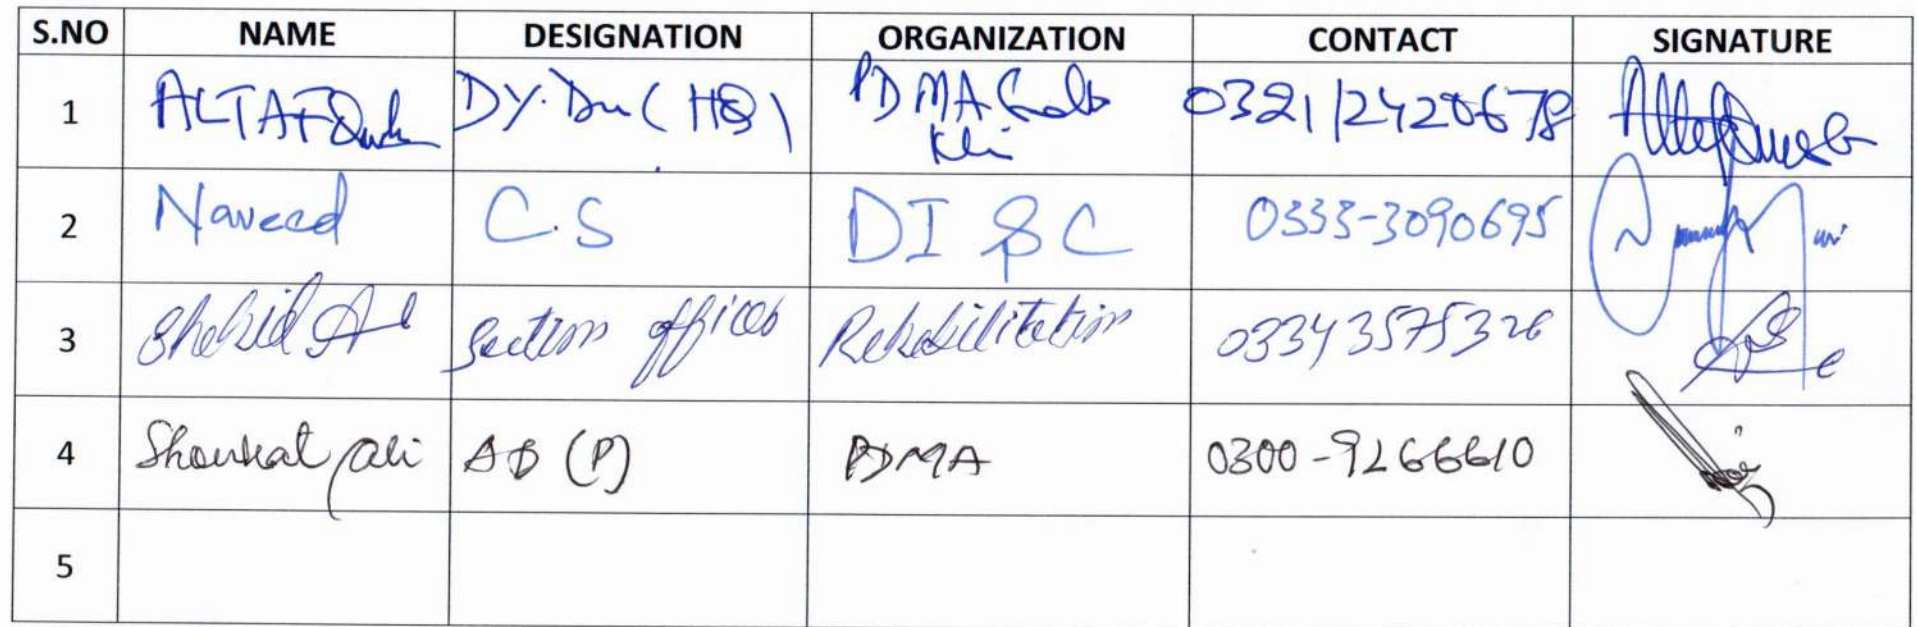 S.NO NAME DESIGNATION ORGANIZATION CONTACT SIGNATURE
1 ALTAF DY. Dir (HQ) PDMA
2 Naveed C.S DI &C 0333-3090695
3 Shahid Al Section officer Rehabilitation 03343575326
4 Shoukat Ali AD (P) PDMA 0300-9266610
5